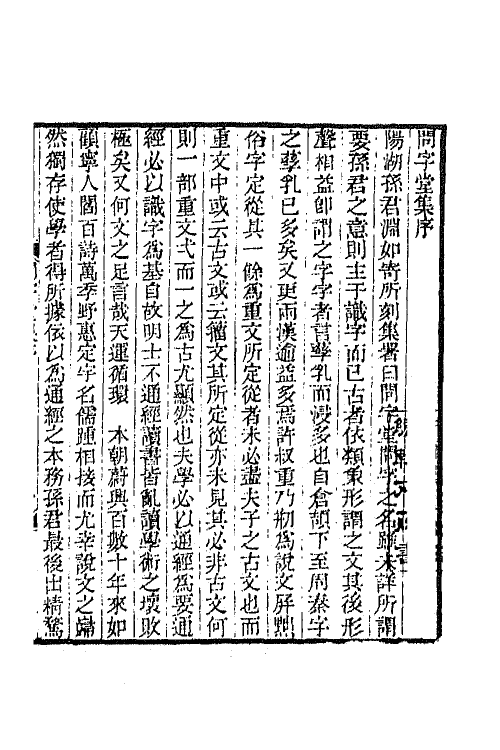 問字堂集序
陽湖孫君淵如寄所刻集署曰問字堂問字之名雖未詳所謂
要孫君之意則主于識字而已古者依類象形謂之文其後形
聲相益卽謂之字字者言孳乳而浸多也自倉頡下至周秦字
之孳乳已多矣又更兩漢逾益多焉許叔重乃剏爲說文屏黜
俗字定從其一餘爲重文所定從者未必盡夫子之古文也而
重文中或云古文或云籀文其所定從亦未見其必非古文何
則一部重文弌而一之爲古尤顯然也夫學必以通經爲要通
經必以識字爲基自故明士不通經讀書皆亂讀學術之壞敗
極矣又何文之足言哉天運循環　本朝蔚興百數十年來如
顧寧人閻百詩萬季野惠定宇名儒踵相接而尤幸說文之歸
然獨存使學者得所據依以爲通經之本務孫君最後出精騖